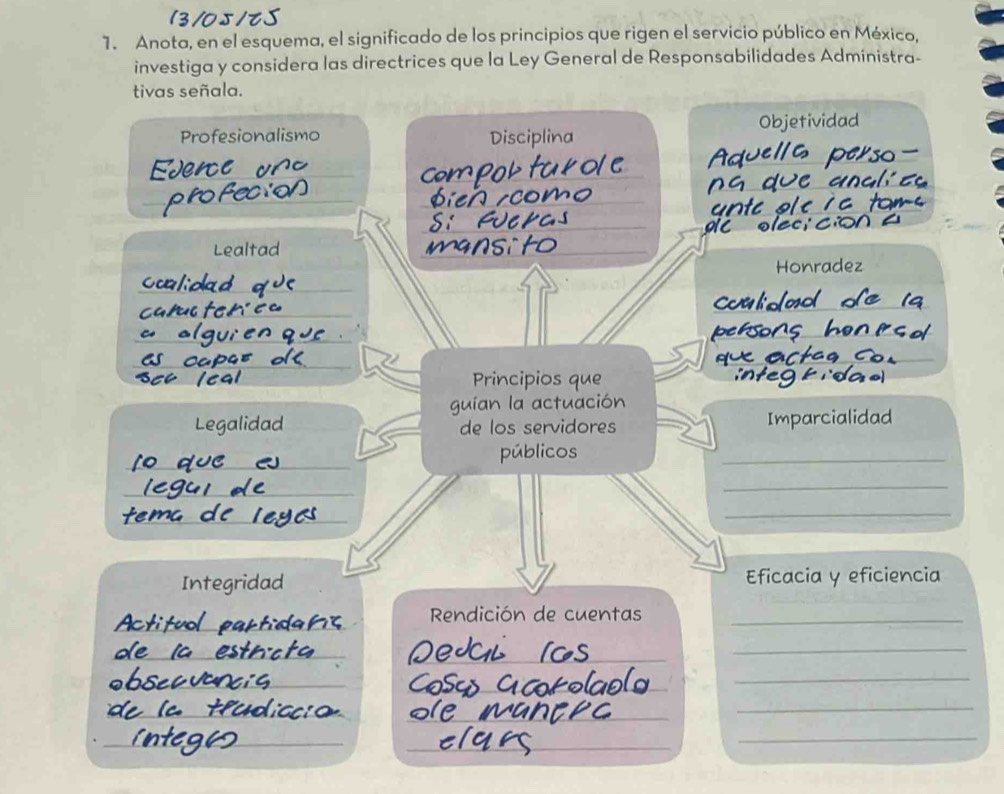 13/05/25
1. Anota, en el esquema, el significado de los principios que rigen el servicio público en México,
investiga y considera las directrices que la Ley General de Responsabilidades Administra-
tivas señala.
Profesionalismo
Ejerce una
profecion
Disciplina
comporturole
bien, como
Si fueras
mansito
Objetividad
Aquella perso-
na que analiza
ante de la toma
de olecicion a
Lealtad
cualidad que
caracterica
a alguien que
es capas de
ser leal
Honradez
cualidad de la
persona honesd
que actaa con
integridad
Principios que
guían la actuación
de los servidores
públicos
Legalidad
lo que es
legal de
tema de leyes
Imparcialidad
Integridad
Actitud partidaria
de la estricta
observancia
de la tradiccion
integro
Rendición de cuentas
las
cosas acordado
de manera
clara
Eficacia y eficiencia